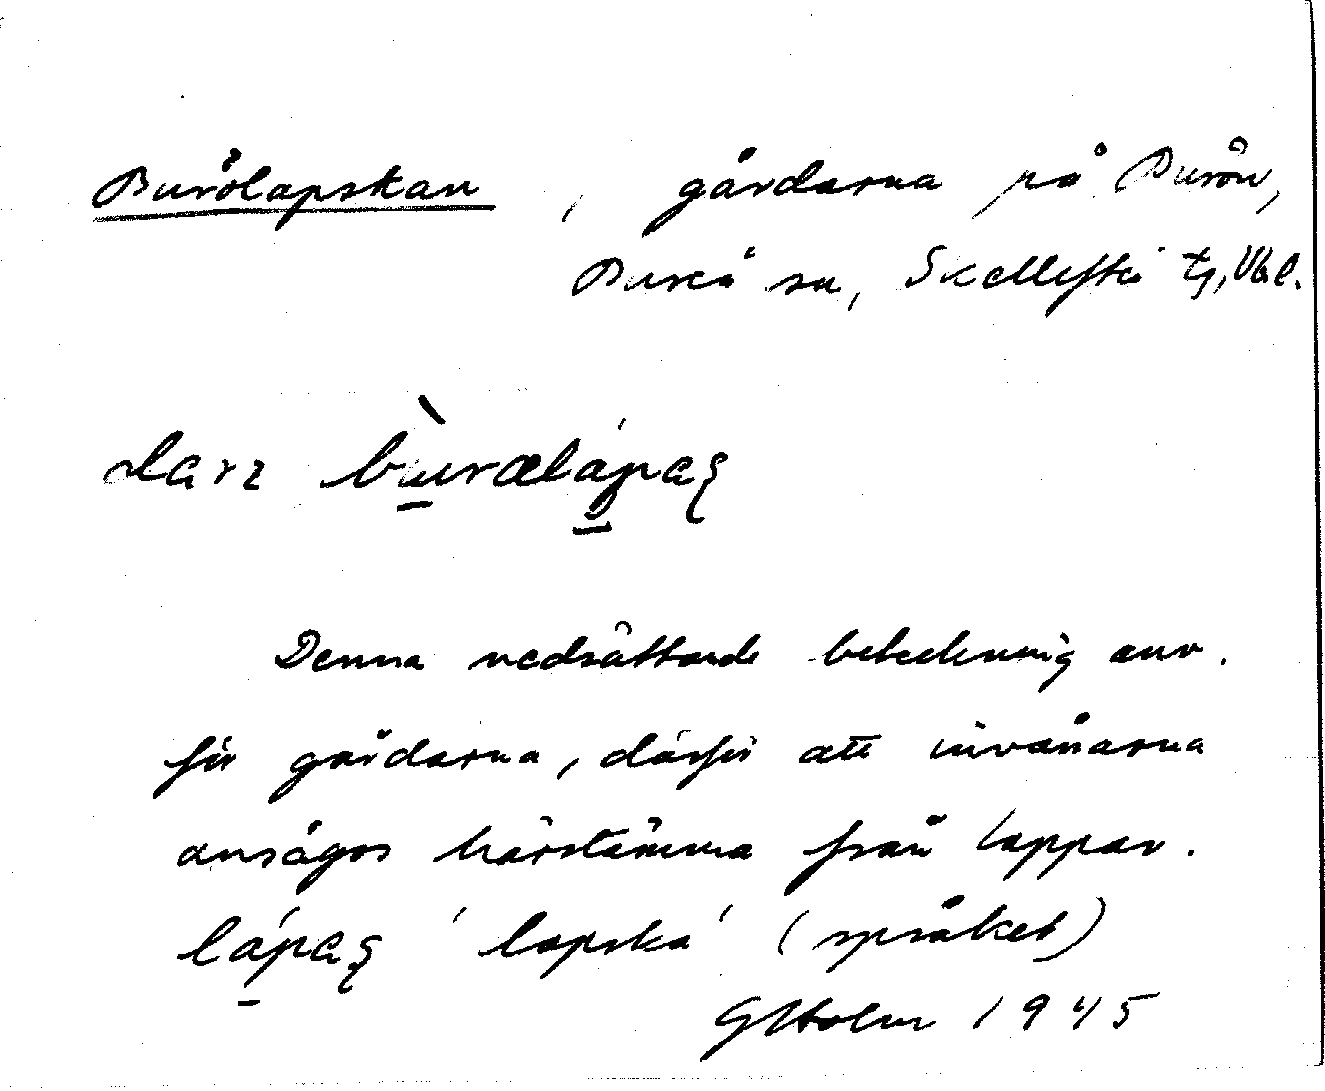 Burölapskan, gårdarna på Burön,
Bureå sn, Skellefteå tg, Vbl.
Denna nedsättande beteckning anv.
för gårdarna, därför att invånarna
ansågos härstamma från lappar.
'lapska' (språket)
G Holm 1945